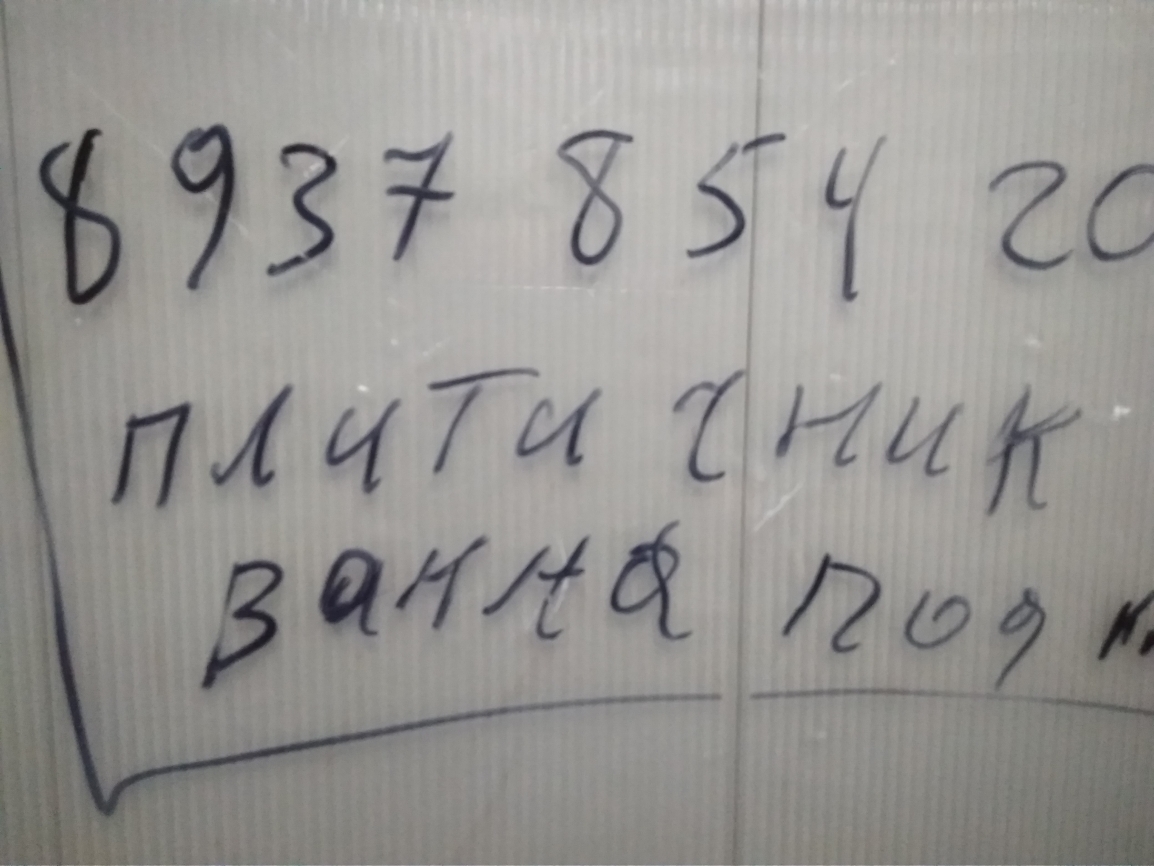 8 937 854 20
плитичник
ванна под